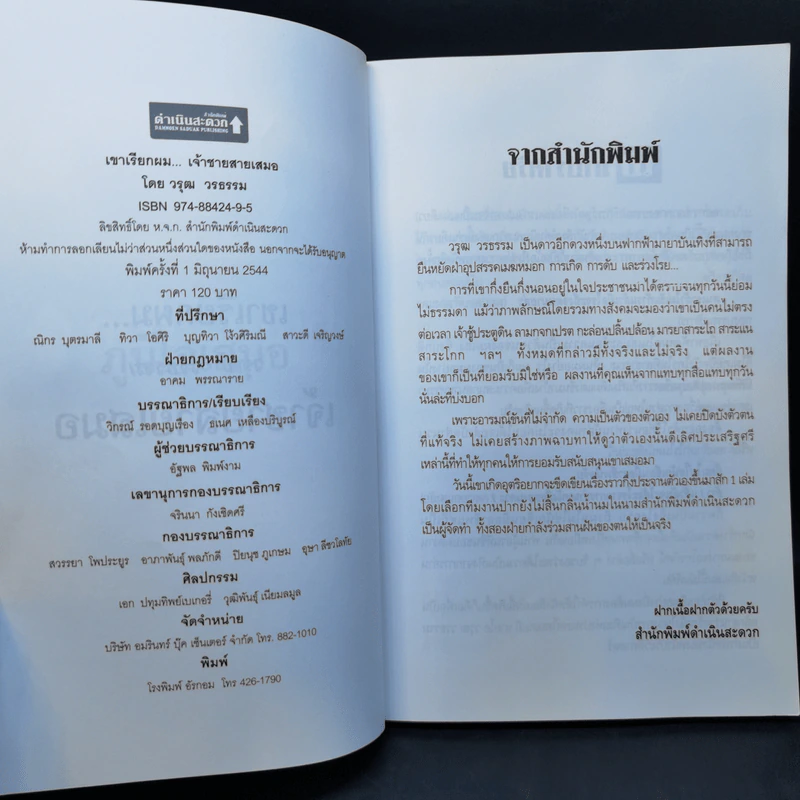 สำนักพิมพ์
ดำเนินสะดวก
DAMNOEN SADUAK PUBLISHING
เขาเรียกผม... เจ้าชายสายเสมอ
โดย วรุฒ วรธรรม
ISBN 974-88424-9-5
ลิขสิทธิ์โดย ห.จ.ก. สำนักพิมพ์ดำเนินสะดวก
ห้ามทำการลอกเลียนไม่ว่าส่วนหนึ่งส่วนใดของหนังสือ นอกจากจะได้รับอนุญาต
พิมพ์ครั้งที่ 1 มิถุนายน 2544
ราคา 120 บาท
ที่ปรึกษา
ณิกร บุตรมาลี ทิวา โอศิริ บุญทิวา โง้วศิริมณี สาวะดี เจริญวงษ์
ฝ่ายกฎหมาย
อาคม พรรณาราย
บรรณาธิการ/เรียบเรียง
วิกรณ์ รอดบุญเรือง ธเนศ เหลืองบริบูรณ์
ผู้ช่วยบรรณาธิการ
อัฐพล พิมพ์งาม
เลขานุการกองบรรณาธิการ
จรินนา กังเซิดศรี
กองบรรณาธิการ
สวรรยา โพประยูร อาภาพันธุ์ พลภักดี ปิยนุช ภูเกษม อุษา ลีชวโลทัย
ศิลปกรรม
เอก ปทุมทิพย์เบเกอรี่ วุฒิพันธุ์ เนียมลมูล
จัดจำหน่าย
บริษัท อมรินทร์ บุ๊ค เซ็นเตอร์ จำกัด โทร. 882-1010
พิมพ์
โรงพิมพ์ อัรกอม โทร 426-1790
จากสำนักพิมพ์
วรุฒ วรธรรม เป็นดาวอีกดวงหนึ่งบนฟากฟ้ามายาบันเทิงที่สามารถ
ยืนหยัดฝ่าอุปสรรคเมฆหมอก การเกิด การดับ และร่วงโรย...
การที่เขากึ่งยืนกึ่งนอนอยู่ในใจประชาชนมาได้ตราบจนทุกวันนี้ย่อม
ไม่ธรรมดา แม้ว่าภาพลักษณ์โดยรวมทางสังคมจะมองว่าเขาเป็นคนไม่ตรง
ต่อเวลา เจ้าชู้ประตูดิน ลามกจกเปรต กะล่อนปลิ้นปล้อน มารยาสาระไถ สาระแน
สาระโกก ฯลฯ ทั้งหมดที่กล่าวมีทั้งจริงและไม่จริง แต่ผลงาน
ของเขาก็เป็นที่ยอมรับมิใช่หรือ ผลงานที่คุณเห็นจากแทบทุกสื่อแทบทุกวัน
นั่นล่ะที่บ่งบอก
เพราะอารมณ์ขันที่ไม่จำกัด ความเป็นตัวของตัวเอง ไม่เคยปิดบังตัวตน
ที่แท้จริง ไม่เคยสร้างภาพฉาบทาให้ดูว่าตัวเองนั้นดีเลิศประเสริฐศรี
เหล่านี้ที่ทำให้ทุกคนให้การยอมรับสนับสนุนเขาเสมอมา
วันนี้เขาเกิดอุตริอยากจะขีดเขียนเรื่องราวกึ่งประจานตัวเองขึ้นมาสัก 1 เล่ม
โดยเลือกทีมงานปากยังไม่สิ้นกลิ่นน้ำนมในนามสำนักพิมพ์ดำเนินสะดวก
เป็นผู้จัดทำ ทั้งสองฝ่ายกำลังร่วมสานฝันของตนให้เป็นจริง
ฝากเนื้อฝากตัวด้วยครับ
สำนักพิมพ์ดำเนินสะดวก